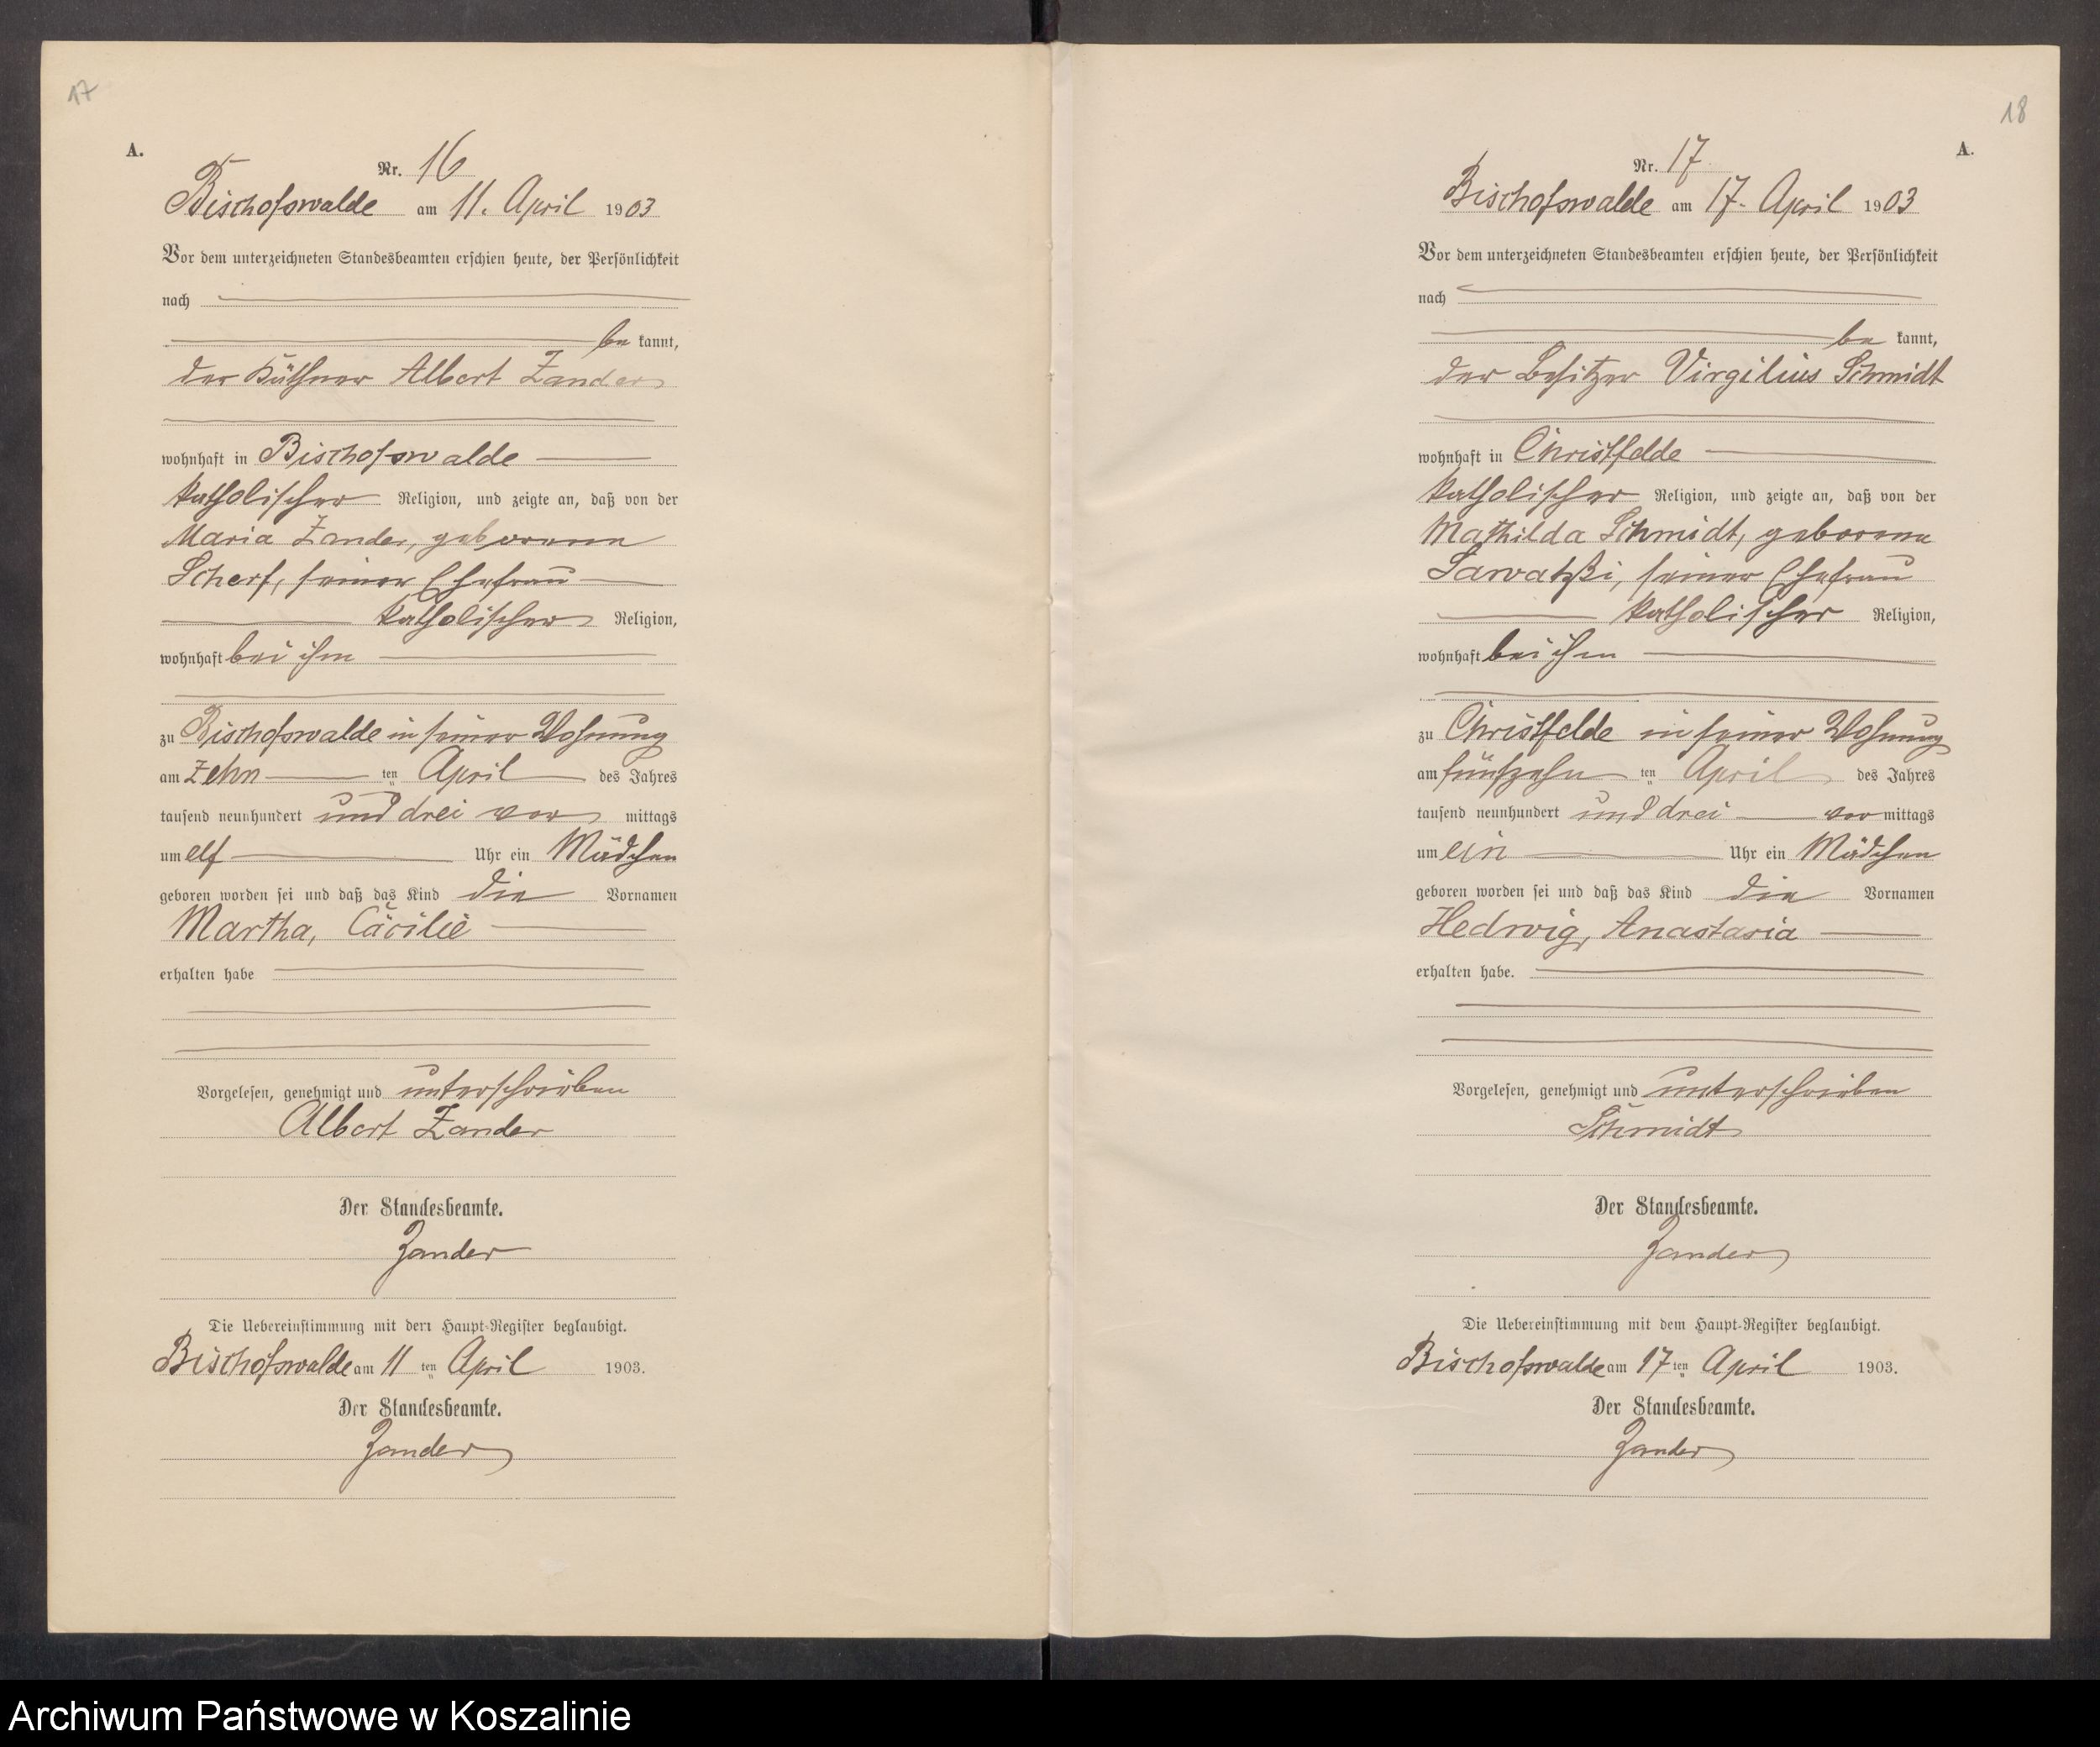 17
A.
Nr. 16
Bischofswalde am 11. April 1903
Vor dem unterzeichneten Standesbeamten erschien heute, der Persönlichkeit
nach
be kannt,
der Käthner Albert Zander
wohnhaft in Bischofswalde
katholischer Religion, und zeigte an, daß von der
Maria Zander, geborene
Scherf, seiner Ehefrau
katholischer Religion,
wohnhaft bei ihm
zu Bischofswalde in seiner Wohnung
am zehn ten April des Jahres
tausend neunhundert und drei vor mittags
um elf Uhr ein Mädchen
geboren worden sei und daß das Kind die Vornamen
Martha, Cäcilie
erhalten habe
Vorgelesen, genehmigt und unterschrieben
Albert Zander
Der Standesbeamte.
Zander
Die Uebereinstimmung mit dem Haupt-Register beglaubigt.
Bischofswalde am 11 ten April 1903.
Der Standesbeamte.
Zander
18
A.
Nr. 17
Bischofswalde am 17. April 1903
Vor dem unterzeichneten Standesbeamten erschien heute, der Persönlichkeit
nach
be kannt,
der Besitzer Virgilius Schmidt
wohnhaft in Christfelde
katholischer Religion, und zeigte an, daß von der
Mathilda Schmidt, geborene
Sawatzki, seiner Ehefrau
katholischer Religion,
wohnhaft bei ihm
zu Christfelde in seiner Wohnung
am fünfzehn ten April des Jahres
tausend neunhundert und drei vor mittags
um ein Uhr ein Mädchen
geboren worden sei und daß das Kind die Vornamen
Hedwig, Anastasia
erhalten habe.
Vorgelesen, genehmigt und unterschrieben
Schmidt
Der Standesbeamte.
Zander
Die Uebereinstimmung mit dem Haupt-Register beglaubigt.
Bischofswalde am 17 ten April 1903.
Der Standesbeamte.
Zander
Archiwum Państwowe w Koszalinie